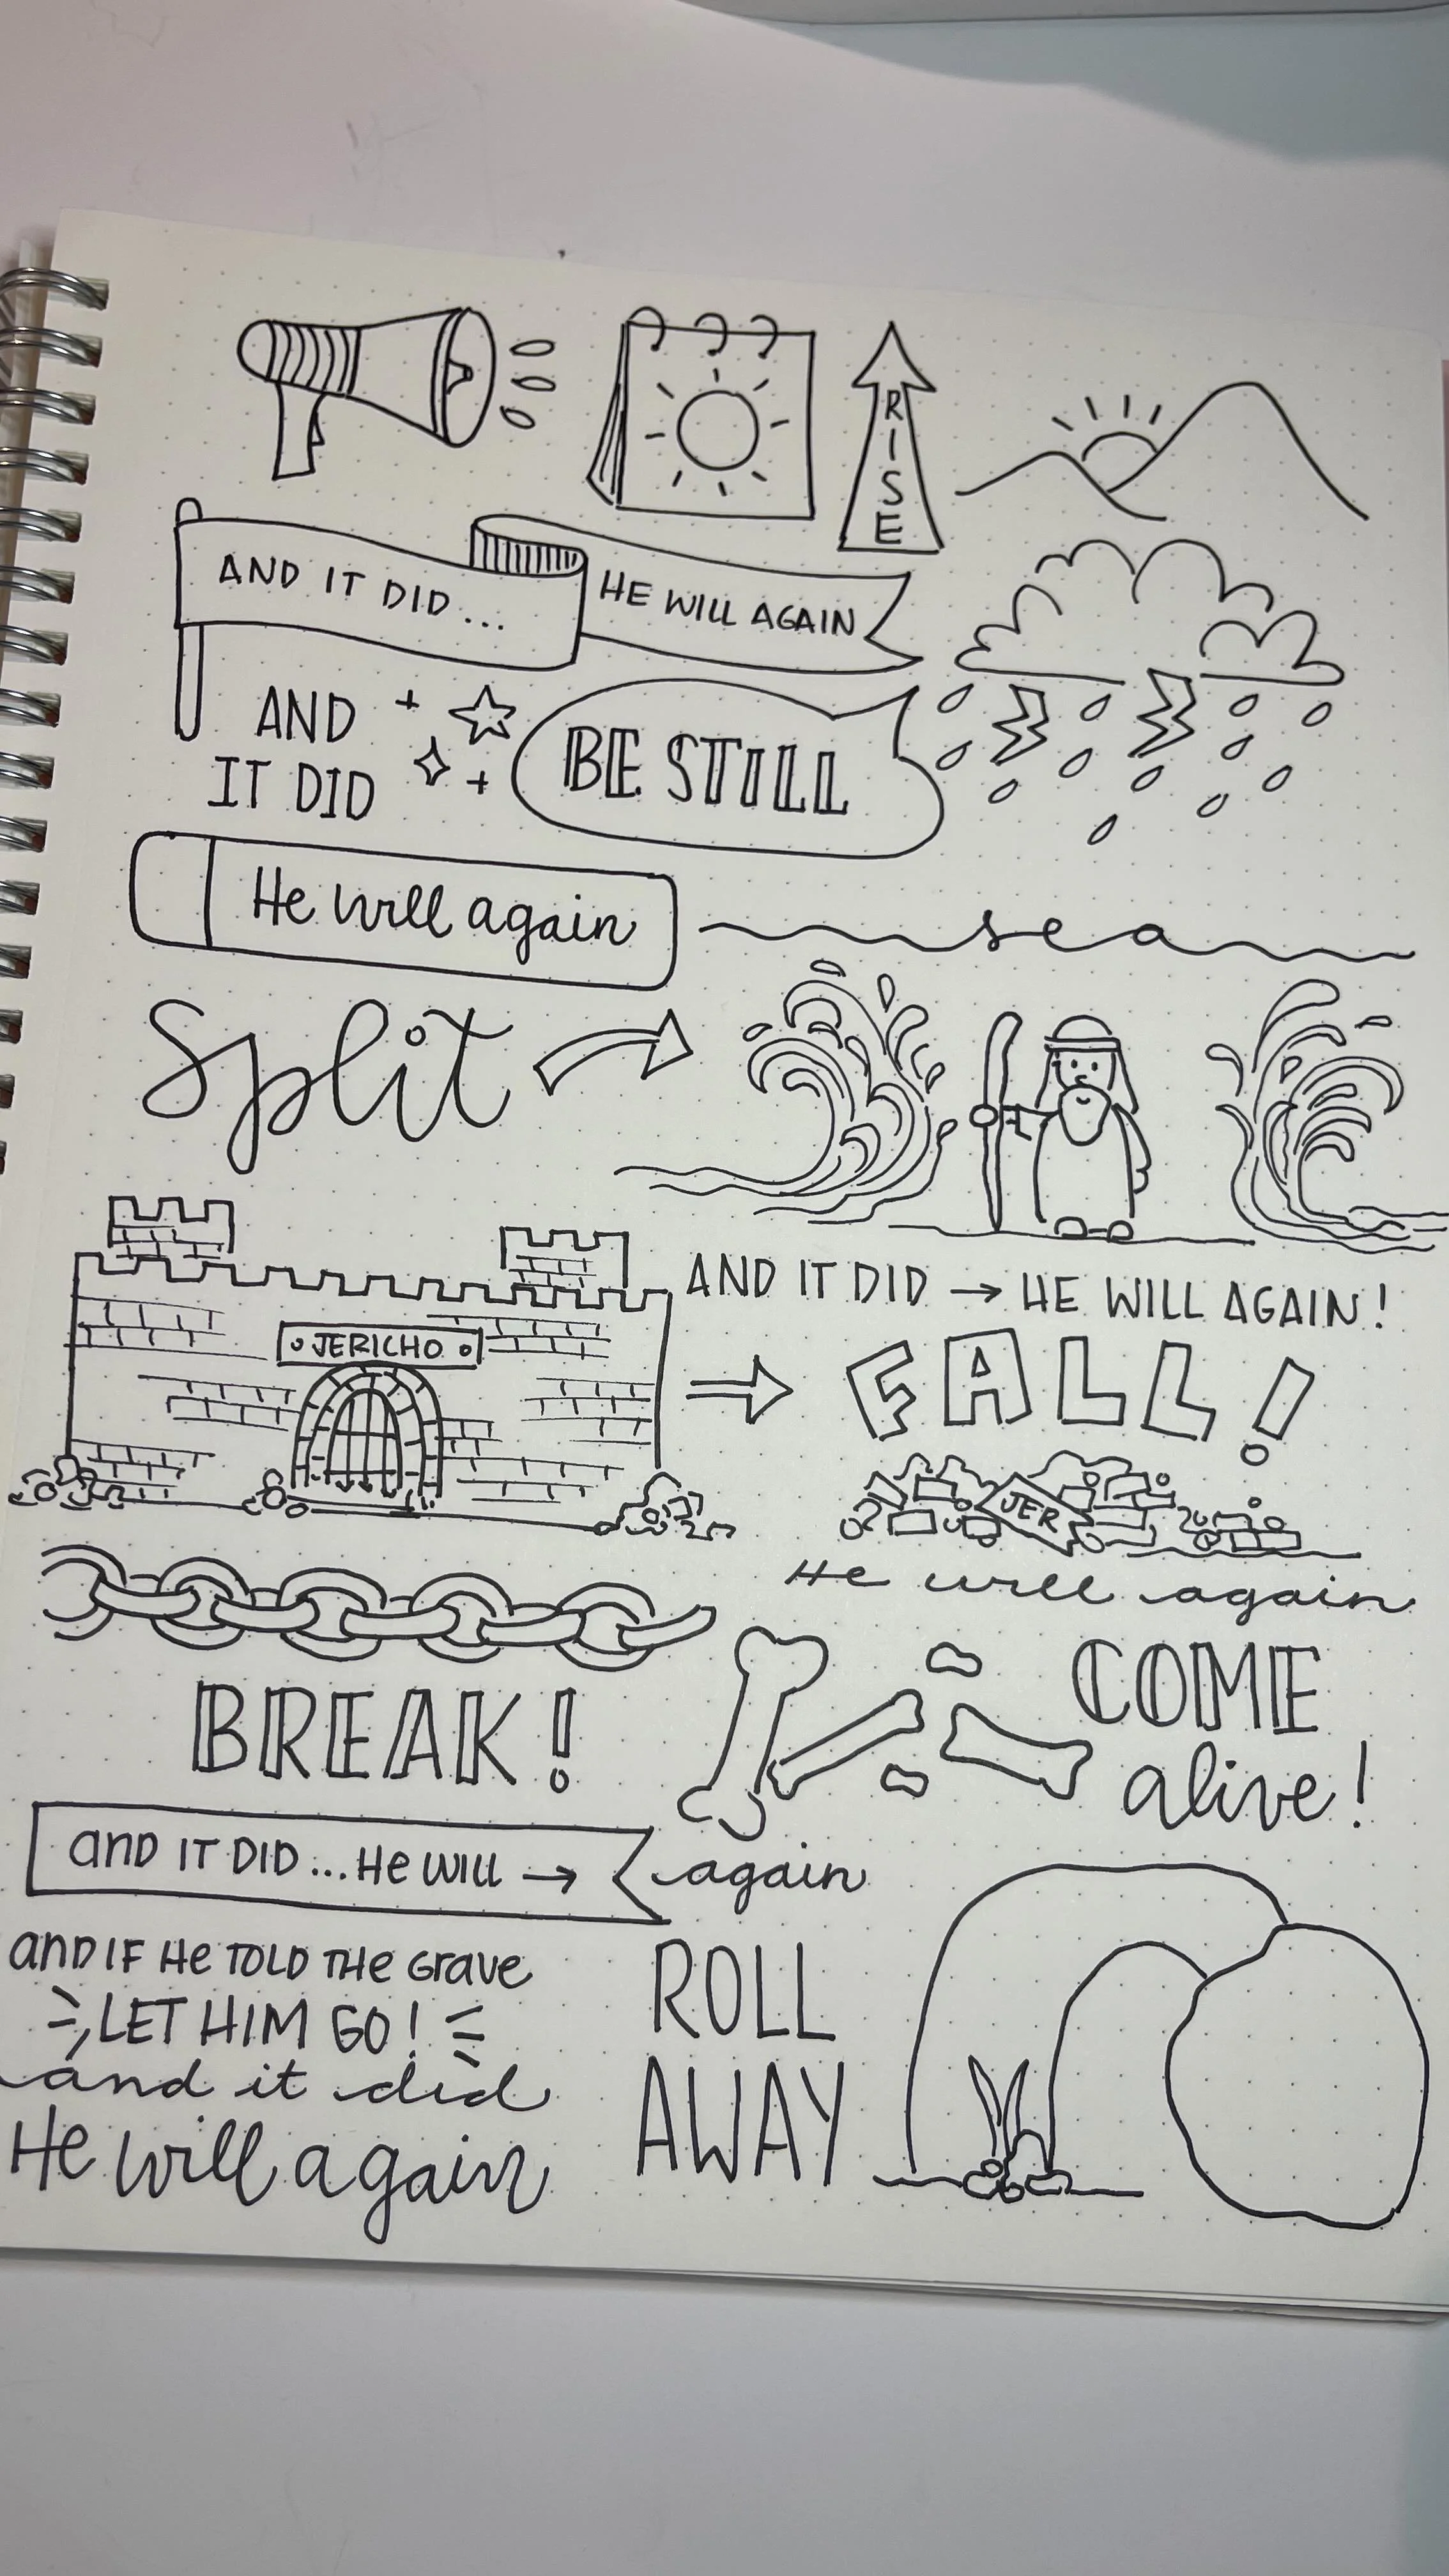 RISE
AND IT DID... HE WILL AGAIN
AND
IT DID
BE STILL
He will again
sea
Split
AND IT DID → HE WILL AGAIN!
JERICHO
FALL!
JER
He will again
BREAK!
COME
alive!
and IT DID... He will → again
and IF He TOLD THe Grave
LET HIM GO!
and it did
He will again
ROLL
AWAY